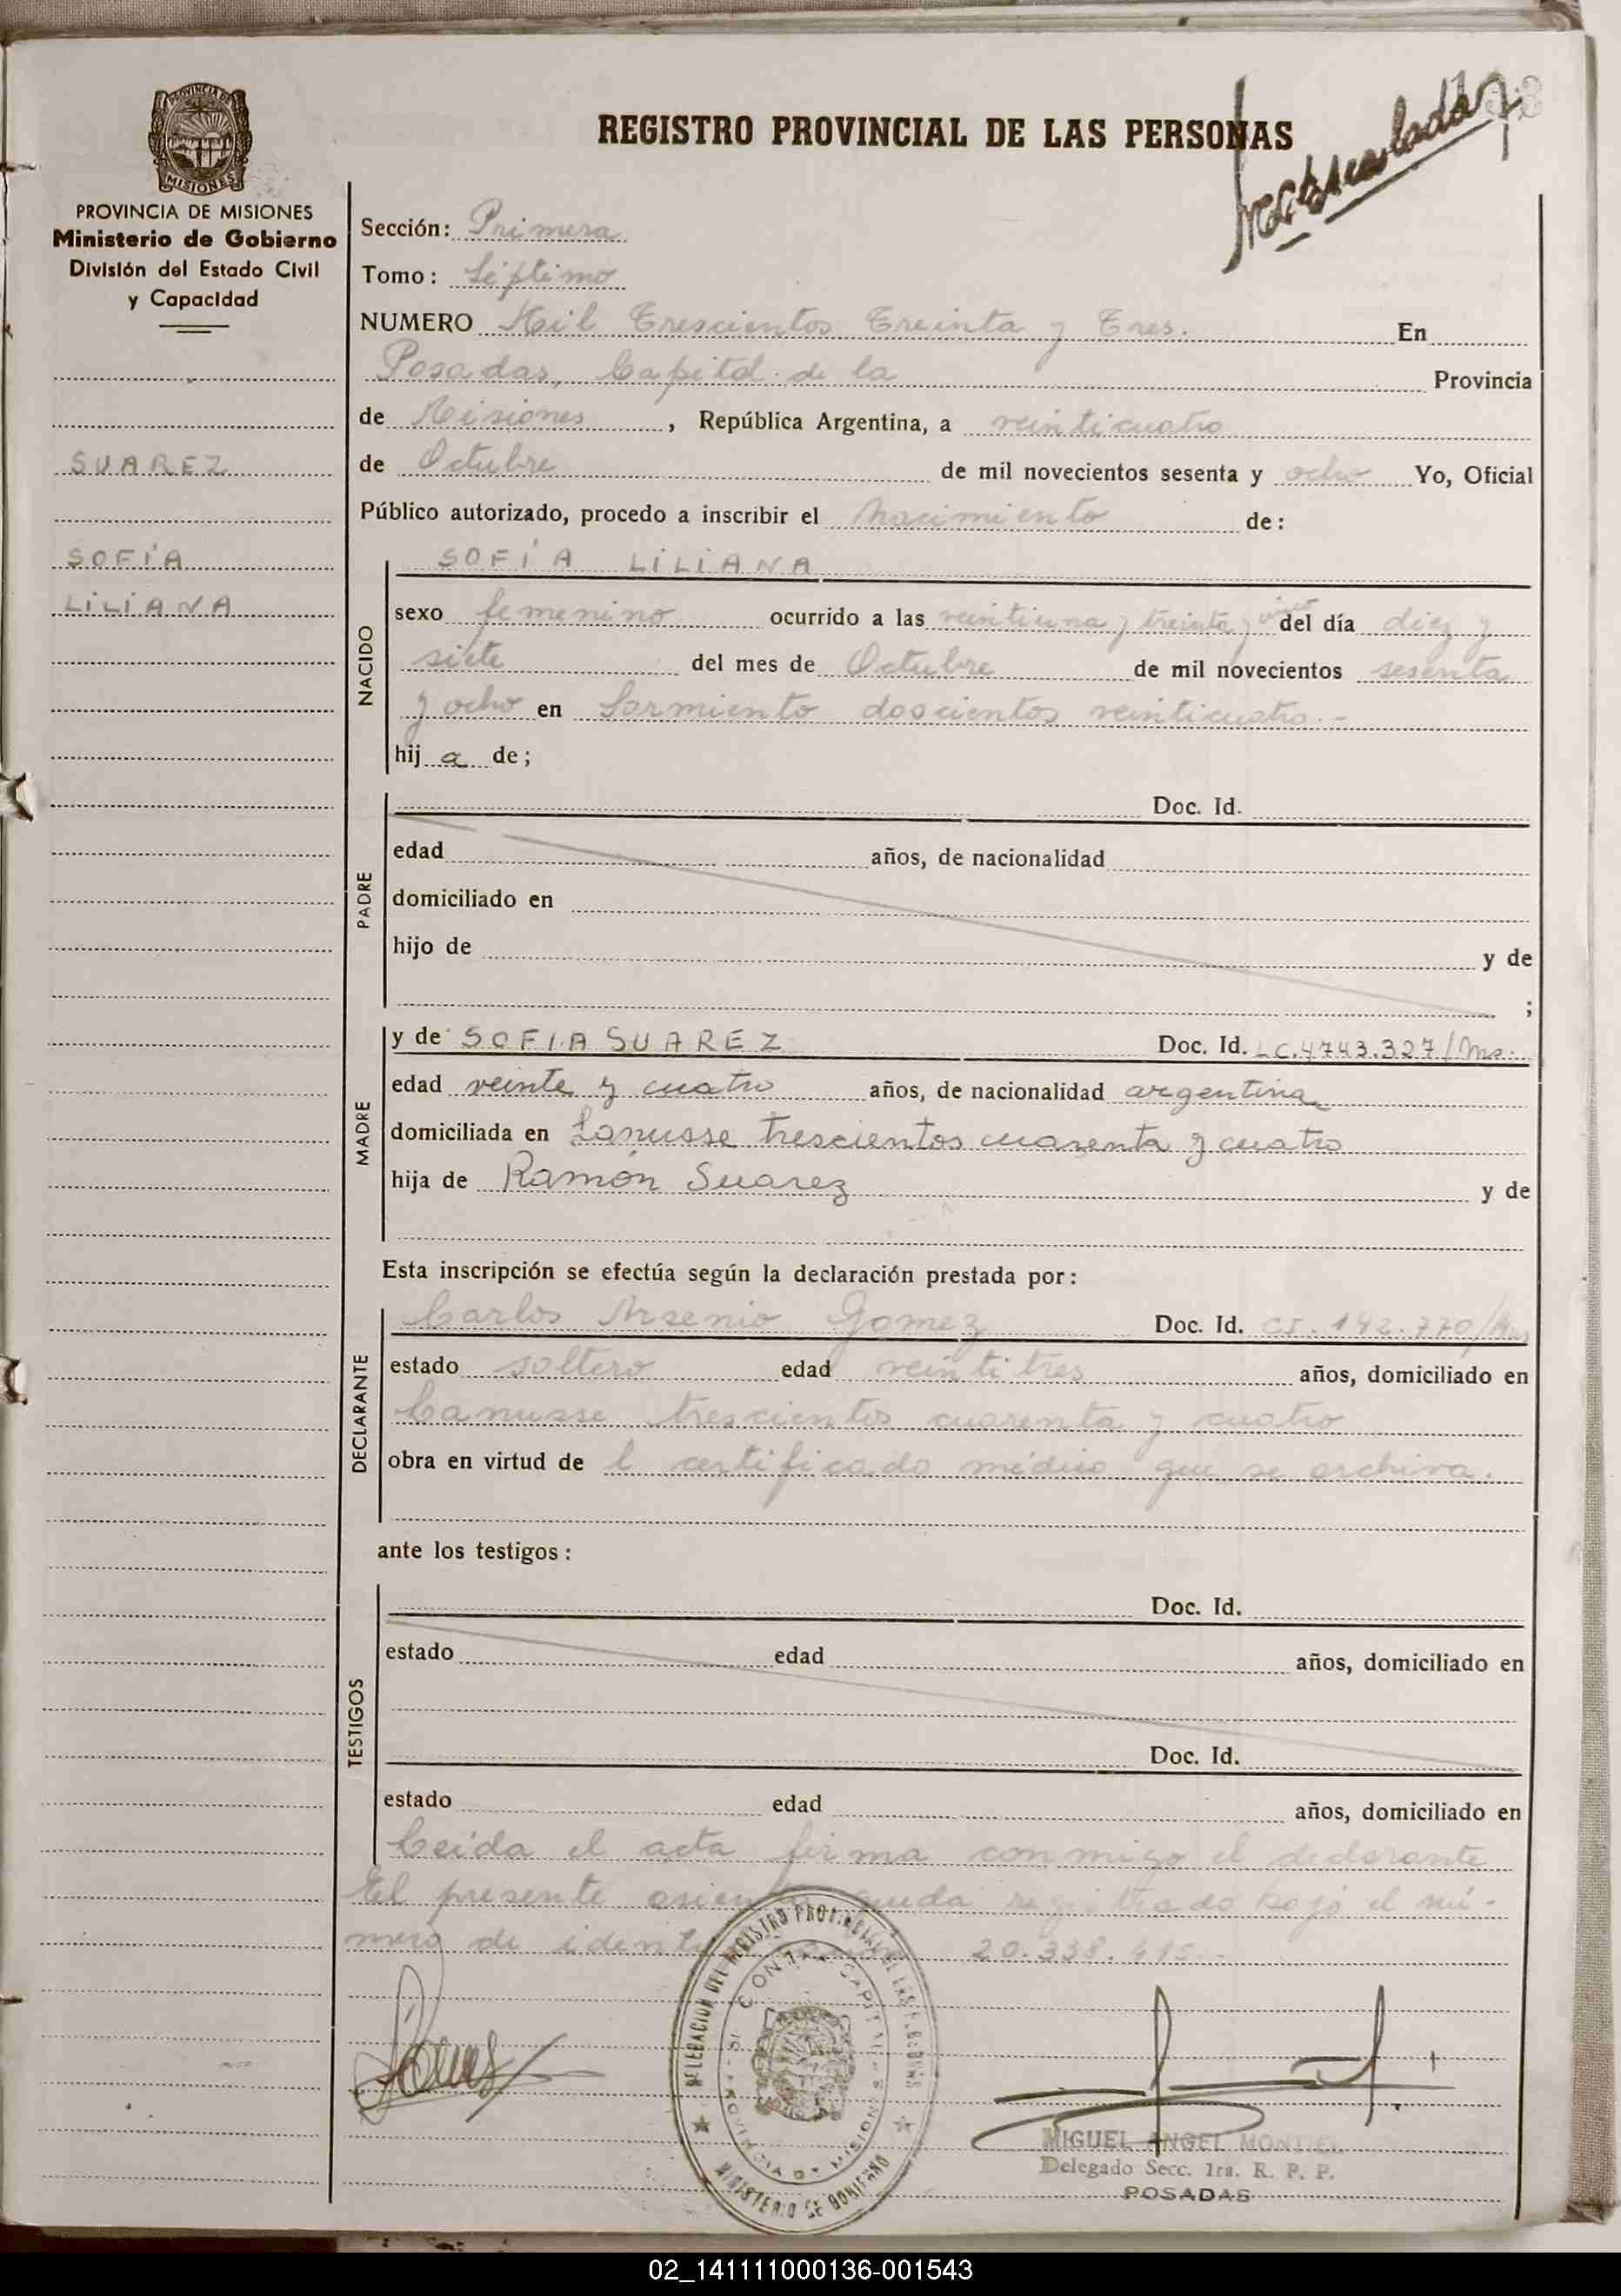 PROVINCIA DE MISIONES
PROVINCIA DE MISIONES
Ministerio de Gobierno
División del Estado Civil
y Capacidad
REGISTRO PROVINCIAL DE LAS PERSONAS
Matriculado
Sección: Primera
Tomo: Séptimo
NUMERO Mil Trescientos Treinta y Tres. En
Posadas, Capital de la Provincia
de Misiones, República Argentina, a veinticuatro
de Octubre de mil novecientos sesenta y ocho Yo, Oficial
Público autorizado, procedo a inscribir el nacimiento de:
SUAREZ
SOFÍA
LILIANA
NACIDO
SOFÍA LILIANA
sexo femenino ocurrido a las veintiuna y treinta y cinco del día diez y
siete del mes de Octubre de mil novecientos sesenta
y ocho en Sarmiento doscientos veinticuatro.-
hija de;
PADRE
Doc. Id.
edad años, de nacionalidad
domiciliado en
hijo de y de
;
MADRE
y de SOFIA SUAREZ Doc. Id. LC.4743.327/Ms.
edad veinte y cuatro años, de nacionalidad argentina
domiciliada en Lanusse trescientos cuarenta y cuatro
hija de Ramón Suarez y de
Esta inscripción se efectúa según la declaración prestada por:
DECLARANTE
Carlos Arsenio Gomez Doc. Id. CI. 142.770/Mns
estado soltero edad veintitres años, domiciliado en
Lanusse trescientos cuarenta y cuatro
obra en virtud de l certificado médico que se archiva.
ante los testigos:
TESTIGOS
Doc. Id.
estado edad años, domiciliado en
Doc. Id.
estado edad años, domiciliado en
Leída el acta firma conmigo el declarante
El presente asiento queda registrado bajo el nú-
mero de 20.338.415.-
DELEGACION DEL REGISTRO PROVINCIAL DE LAS PERSONAS
MINISTERIO DE GOBIERNO
PROVINCIA DE MISIONES
MIGUEL ANGEL MONTIEL
Delegado Secc. 1ra. R. P. P.
POSADAS
02_141111000136-001543